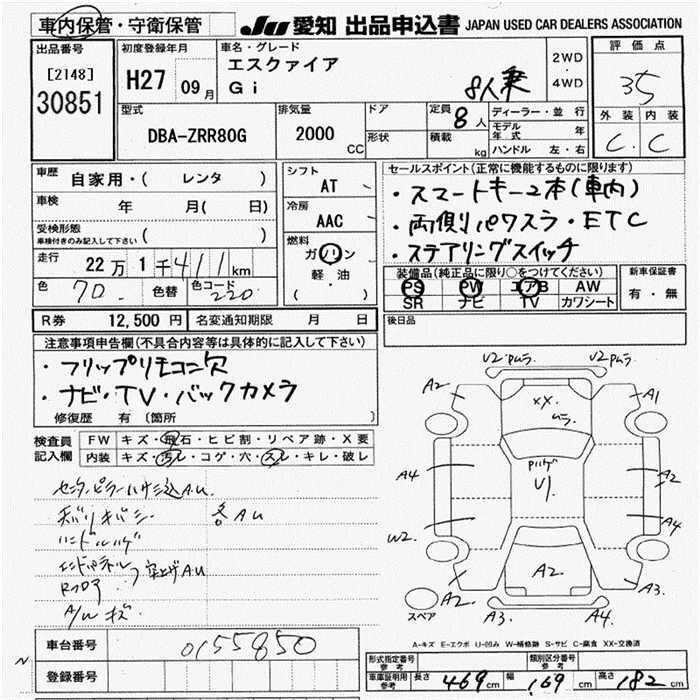 車内保管・守衛保管
JU 愛知 出品申込書 JAPAN USED CAR DEALERS ASSOCIATION
出品番号
[2148]
30851
初度登録年月
H27 09月
車名・グレード
エスクァイア
Gi
8人乗
2WD
・
4WD
評価点
35
外装 内装
C. C
型式
DBA-ZRR80G
排気量
2000 CC
ドア
形状
定員 8 人
積載 kg
ディーラー・並行
モデル年式 年
ハンドル 左・右
車歴 自家用・( レンタ )
車検 年 月( 日)
受検形態
車検付きのみ記入して下さい ( )
走行 22万1千411km
色 70. 色替 色コード 220
シフト
AT
冷房
AAC
燃料
ガソリン
軽・油
( )
セールスポイント(正常に機能するものに限ります)
・スマートキー2本(車内)
・両側パワスラ・ETC
・ステアリングスイッチ
装備品(純正品に限り○をつけてください)
PS PW エアB AW
SR ナビ TV カワシート
新車保証書
有・無
R券 12,500円 名変通知期限 月 日
後日品
注意事項申告欄(不具合内容等は具体的に記入して下さい)
・フリップリモコン欠
・ナビ・TV・バックカメラ
修復歴 有 〔箇所 〕
検査員記入欄
FW キズ・飛石・ヒビ割・リペア跡・X要
内装 キズ・汚レ・コゲ・穴・スレ・キレ・破レ
センターピラーハサミ込A.U.
ハンドルハゲ
エンドパネル
Rフロア
突上げAU
A/W キズ
各AU
U2Pムラ U2Pムラ
A2 A1
XX.
ムラ
Pハゲ
U1
A4 A2
W2. A4
A2
A2. A3.
A3. A4.
スペア
A-キズ E-エクボ U-凹み W-補修跡 S-サビ C-腐食 XX-交換済
車台番号 0155850
登録番号
型式指定番号 参考
類別区分番号 参考
車庫証明用参考 長さ 469cm 幅 169cm 高さ 182cm